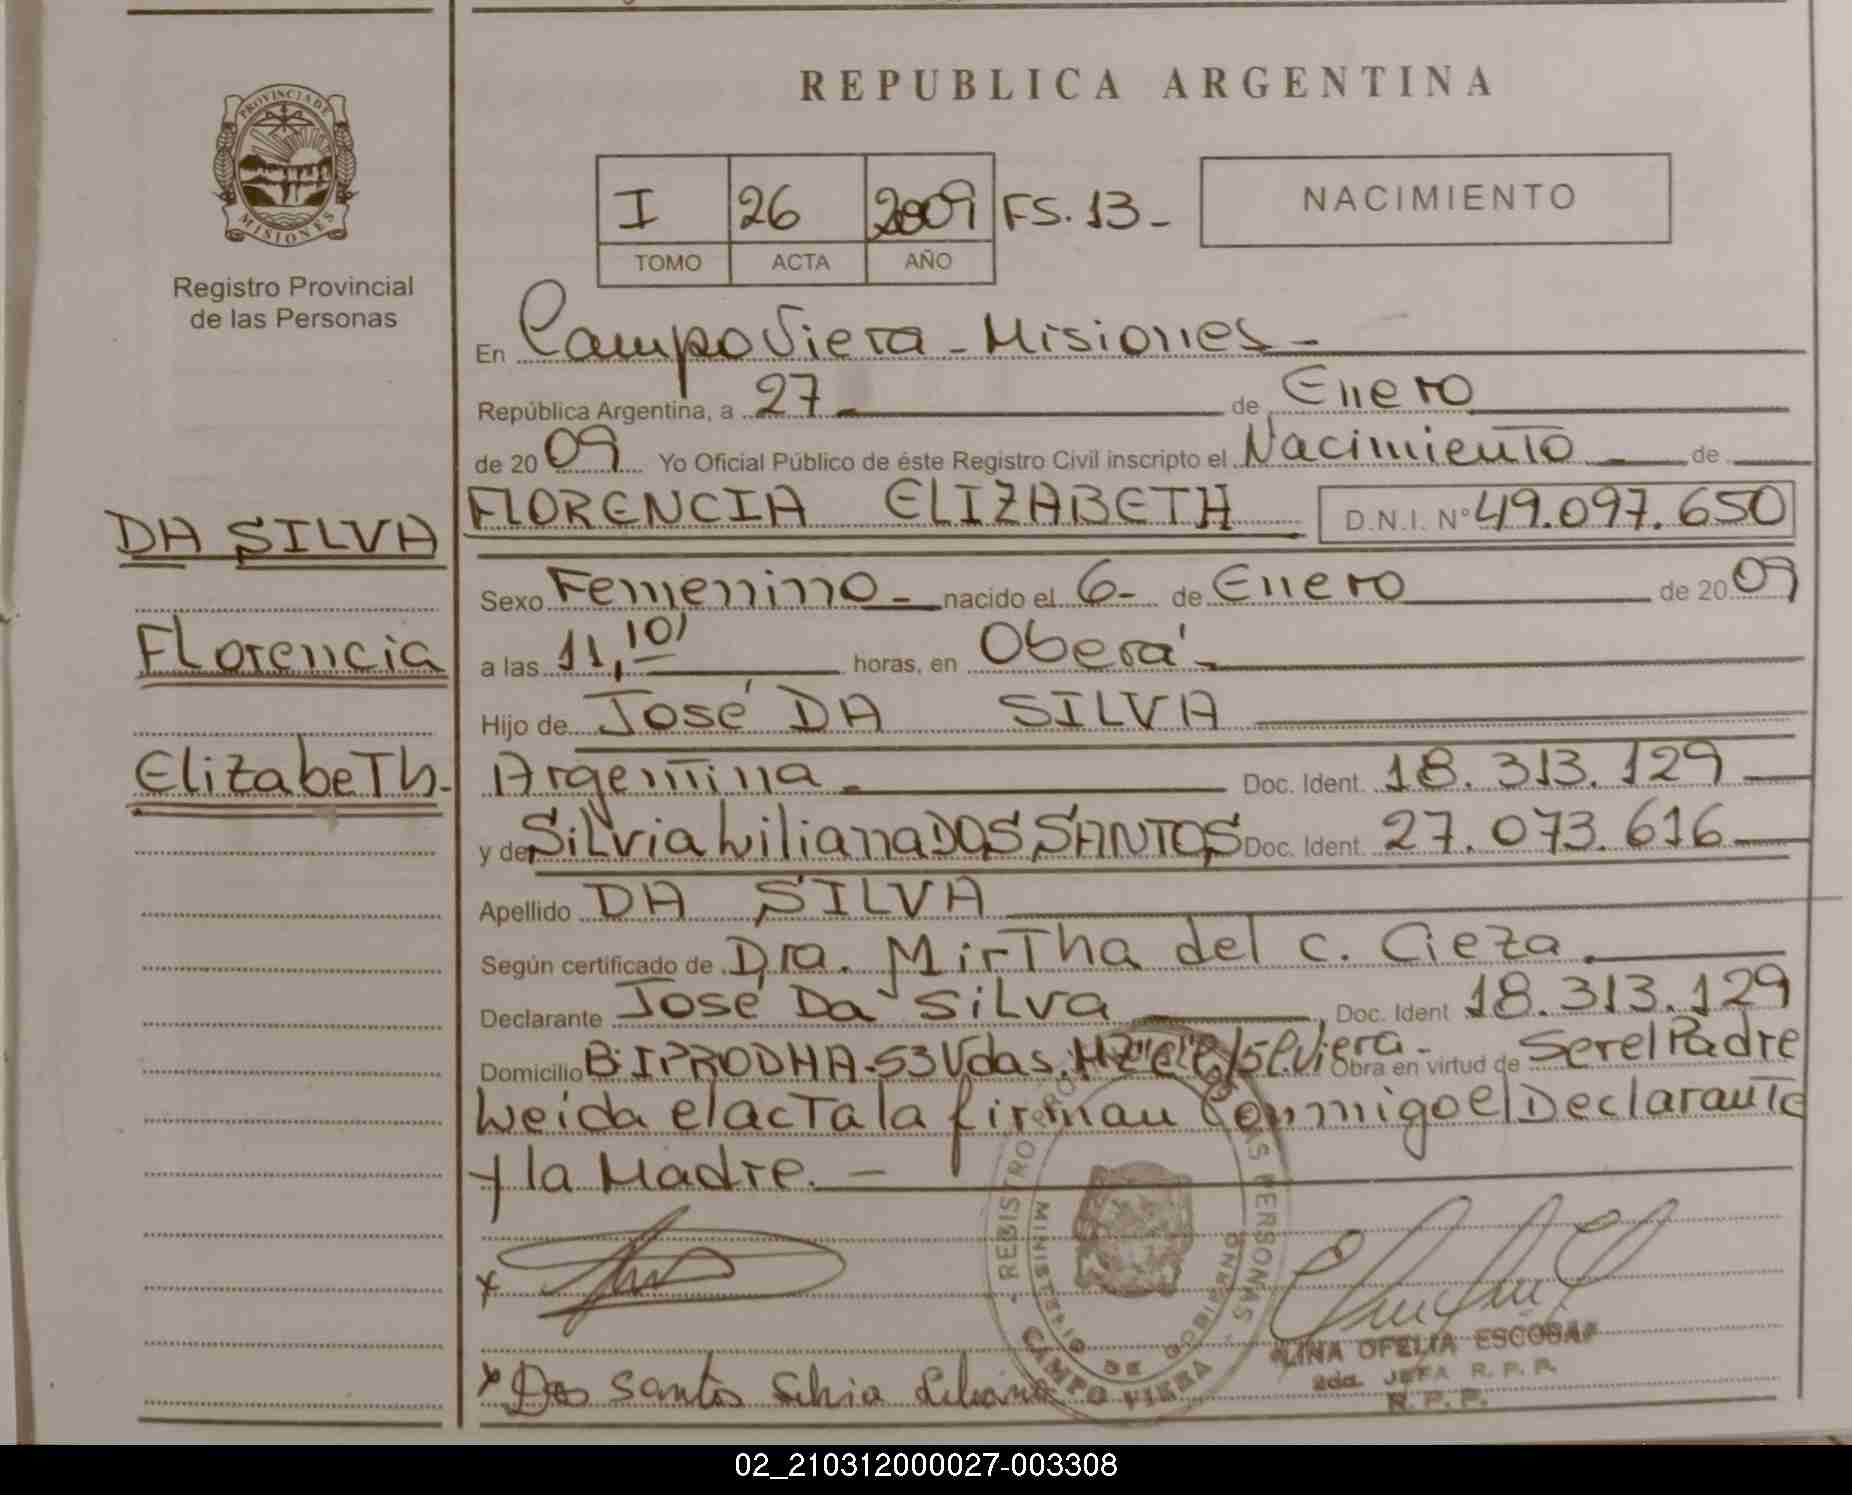 REPUBLICA ARGENTINA
PROVINCIA DE
MISIONES
Registro Provincial
de las Personas
I 26 2009 FS. 13-
TOMO ACTA AÑO
NACIMIENTO
En Campo Viera - Misiones -
República Argentina, a 27 de Enero
de 20 09 Yo Oficial Público de éste Registro Civil inscripto el Nacimiento de
FLORENCIA ELIZABETH D.N.I. Nº 49.097.650
DA SILVA
Florencia
Elizabeth.
Sexo Femenino - nacido el 6- de Enero de 20 09
a las 11,10' horas, en Oberá -
Hijo de José DA SILVA
Argentina Doc. Ident. 18.313.129
y de Silvia Liliana DOS SANTOS Doc. Ident. 27.073.616
Apellido DA SILVA
Según certificado de Dra. Mirtha del C. Cieza
Declarante José Da Silva Doc. Ident 18.313.129
Domicilio B: IPRODHA-53 Vdas. Obra en virtud de Ser el Padre
Leida el acta la firman Conmigo el Declarante
y la Madre. -
x
x Dos Santos Silvia Liliana
- REGISTRO PERSONAS -
MINISTERIO DE GOBIERNO
CAMPO VIERA
LINA OFELIA ESCOBAR
2da. JEFA R. P. P.
R. P. P.
02_210312000027-003308